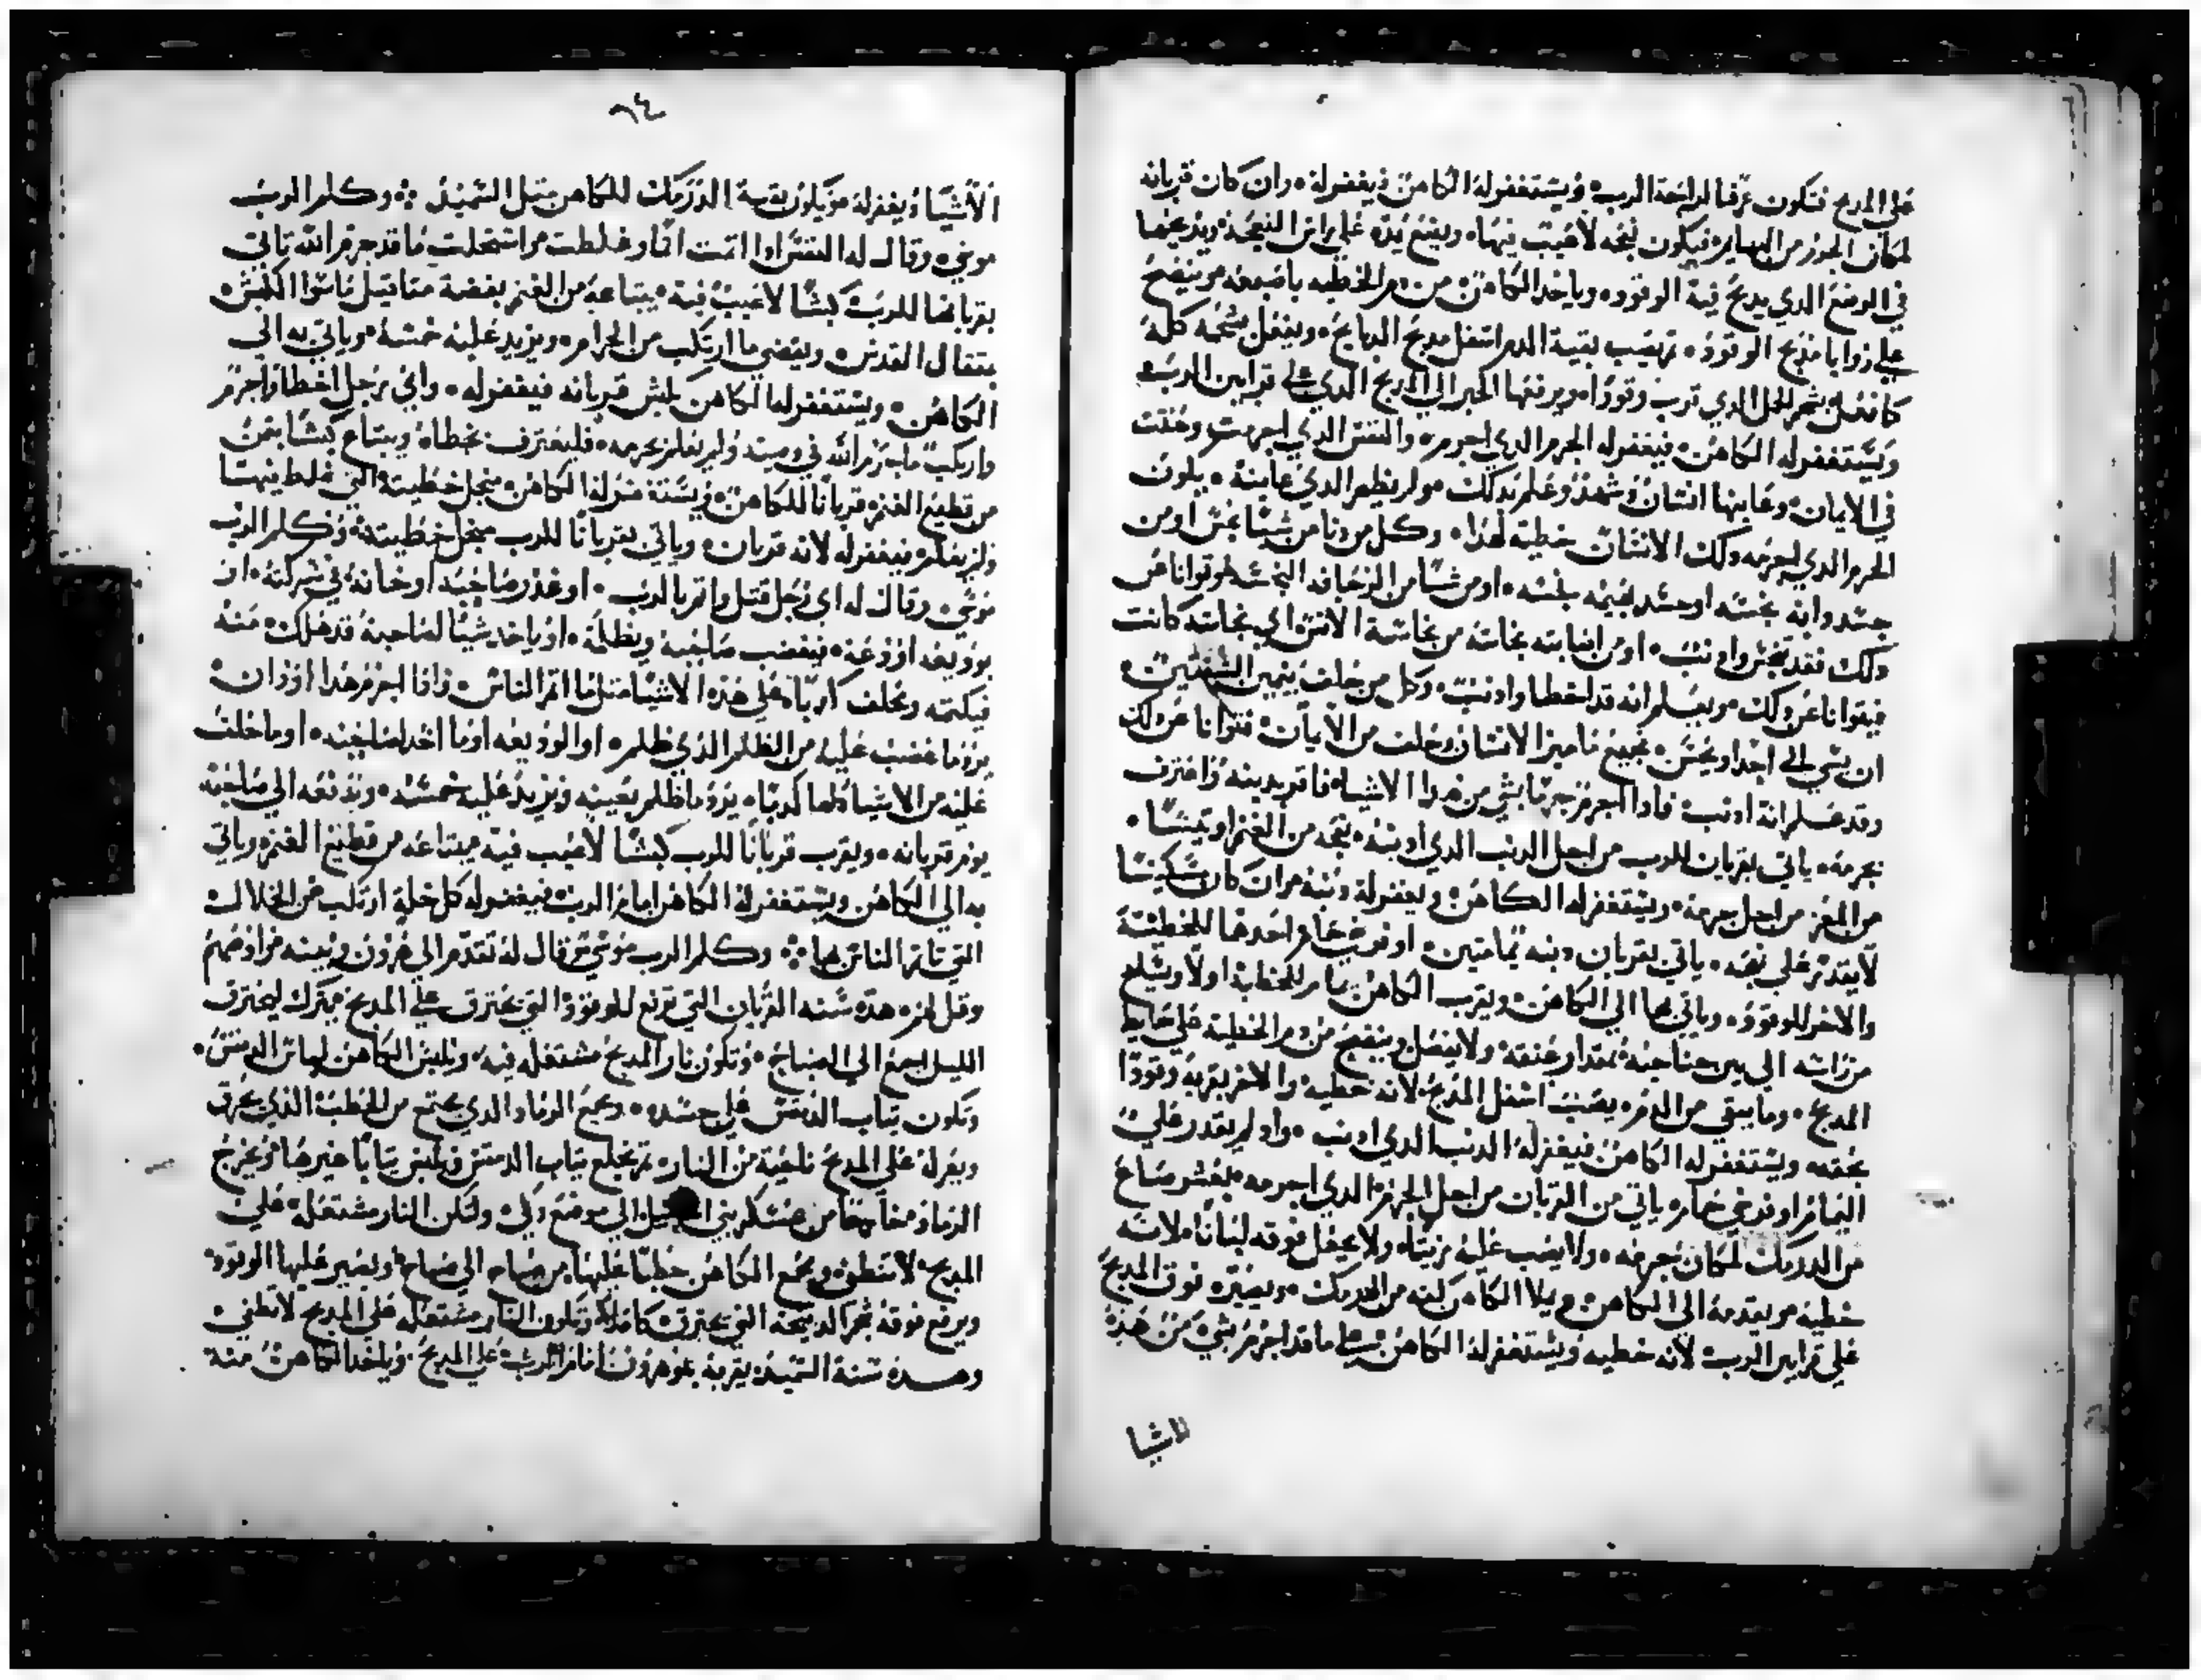 علي المدبح فتكون عرفا لرايحة الرب ويستغفر له الكاهن ويغفر له وان كان قربانه
لمكان الجرم من البهايم فيكون نعجه لا عيب فيها ويضع يده علي راس النعجة ويذبحها
في الموضع الدي يدبح فيه الوقود وياخد الكاهن من دم الخطيه باصبعه وينضح
علي زوايا مدبح الوقود تم يصب بقية الدم اسفل مدبح الدبايح وينقل شحمه كله
كما نقل شحم الحمل الدي قرب وقودا ويرفعها الحبر الي المدبح الدي علي قرابين الرب
ويستغفر له الكاهن فيغفر له الجرم الدي اجرم والنفس الدي اجرمت وحنتت
في الايمان وعاينها انسان وشهد وعلم بدلك ولم يظهر الدي عاينه يكون
الجرم الدي اجرمه دلك الانسان خطية لهدا وكل من دنا من شيا نجس او من
جسد دابه نجسه او جسد بهيمه نجسه او من شيا من الزحافه النجسه
دلك فقد تنجس وادنب او من اصابته نجاسة من نجاسة الانس اي نجاسه كانت
فيتوانا عن دلك ويعلم انه قد اخطا وادنب وكل من حلف بيمين الشفتين
ان يسي الي احد او يحسن بجميع ما ميز الانسان وحلف من الايمان فتوانا عن دلك
وقد علم انه ادنب فادا اجرم جرما بشي من هدا الاشيا واعترف
بجرمه ياتي بقربان للرب من اجل الدنب الدي ادنبه نعجه من الغنم او تيسا
من المعز من اجل جرمه ويستغفر له الكاهن ويغفر له دنبه وان كان مسكينا
لا يقدر علي نعجه ياتي بقربان دنبه يمامتين او فرخي حمام احدهما للخطية
والاخر للوقود وياتي بهما الي الكاهن ويقرب الكاهن للخطايا اولا ويسلخ
من راسه الي بين جناحيه بمقدار عنقه ولا يفصل وينضح من دم الخطية علي حايط
المدبح وما يبقي من الدم يصب اسفل المدبح لانه خطيه والاخر يقربه وقودا
بحقه ويستغفر له الكاهن فيغفر له الدنب الدي ادنب وان لم يقدر علي
اليمام او فرخي حمام ياتي من القربان من اجل الجرم الدي اجرمه بعشر صاع
من الدرمك لمكان جرمه ولا يصب عليه زيتا ولا يجعل فوقه لبانا لانه
خطيه ويقدمه الي الكاهن ويملا الكاهن كفه من الدرمك ويصيره فوق المدبح
علي قرابين الرب لانه خطيه ويستغفر له الكاهن علي ما قد اجرم بشي من هده
الاشيا
٦٤
الاشيا ويغفر له ويكون بقية الدرمك للكاهن متل السميد وكلم الرب
موسي وقال له النفس ادا اتمت اتما وغلطت واستحلت ما قد حرم الله تاتي
بقربانها للرب كبشا لا عيب فيه يبتاعه من الغنم بفضة متاقيل
بمتقال القدس ويقضي ما ارتكب من الحرام ويزيد عليه خمسه وياتي به الي
الكاهن ويستغفر له الكاهن بكبش قربانه فيغفر له واي رجل اخطا واجرم
وارتكب ما حرم الله في وصيته ولم يعلم بجرمه فليعترف بخطاه ويبتاع كبشا بتمن
من قطيع الغنم قربانا للكاهن ويستغفر له الكاهن من اجل خطيته التي غلط فيها
ولم يعلم فيغفر له لانه قربان وياتي بقربانا للرب من اجل خطيته وكلم الرب
موسي وقال له اي رجل قتل واتم بالرب او غدر صاحبه او خانه في شركته ان
بوديعه اودعه فيغضب صاحبه ويظلمه او ياخد شيا لصاحبه قد هلك منه
فيكتمه ويحلف كادبا علي هده الاشيا متل ما اتم الناس وادا اجرم هدا
يرد ما غصب عليه من الظلم الدي ظلم او الوديعه او ما اخد لصاحبه او ما حلف
عليه من الاشيا كلها كدبا يرد ما ظلم بعينه ويزيد عليه خمسه ويدفعه الي صاحبه
يوم قربانه ويقرب قربانا للرب كبشا لا عيب فيه يبتاعه من قطيع الغنم وياتي
به الي الكاهن ويستغفر له الكاهن امام الرب فيغفر له كل خلة ارتكب من الخلال
التي تاتم الناس بها وكلم الرب موسي وقال له تقدم الي هرون وبنيه واوصهم
وقل لهم هده سنه القربان التي ترفع للوقود التي تحترق علي المدبح ليحترق
الليل اجمع الي الصباح وتكون نار المدبح مشتعله فيه ويلبس الكاهن لباس الدمقس
وتكون تياب الدمقس علي جسده ويجمع الرماد الدي يجتمع من الحطب الدي يحرق
ويعزله علي المدبح ناحية من النار تم يخلع تياب الدمقس ويلبس تيابا غيرها ويخرج
الرماد خارجا من عسكر بني اسراييل الي موضع دكي ولتكن النار مشتعله علي
المدبح لا تنطفي ويجمع الكاهن حطبا عليها من صباح الي صباح ويصير عليها الوقود
ويرفع فوقه شحم الدبيحة التي تحترق كامله وتكون النار مشتعله علي المدبح لا تطفي
وهده سنة السميد يقربه بنو هرون امام الرب علي المدبح وياخد الكاهن منه